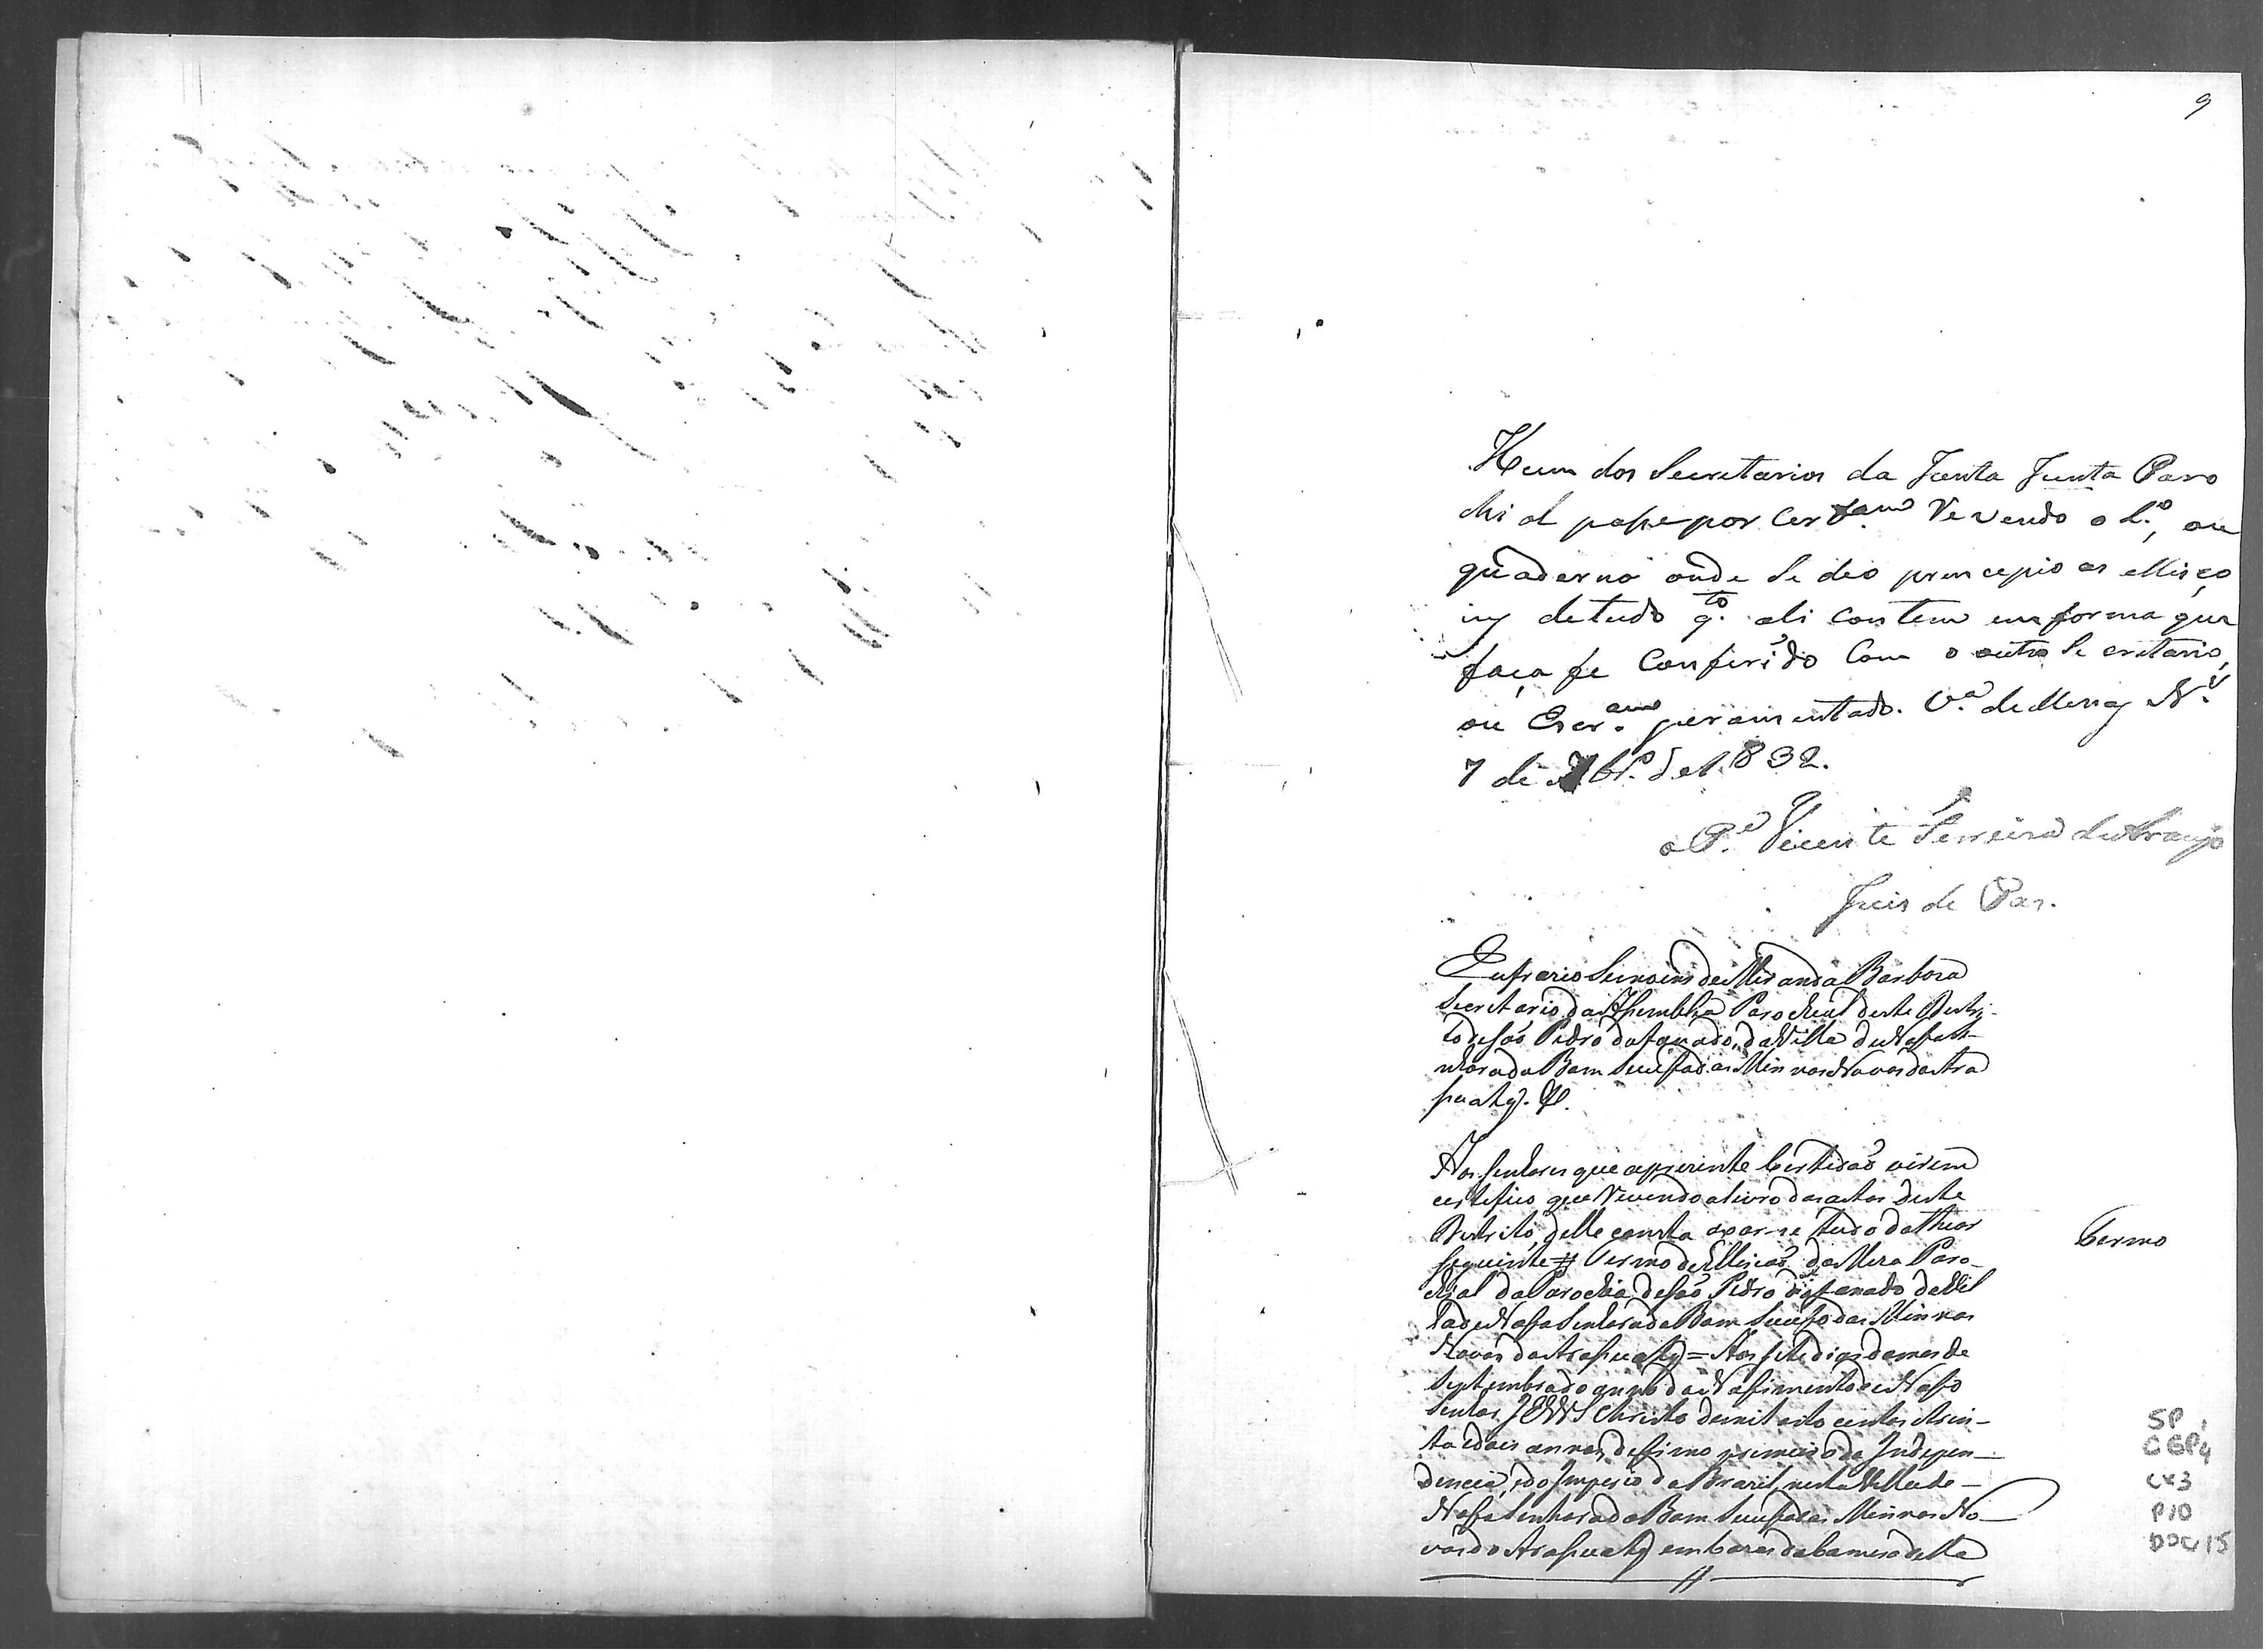 9
Hum dos Secretarios da Junta Junta Paro
chial passe por Certam Revendo o L.o, ou
quaderno onde se deo prencepio as elliço
ins de tudo q.to ali contem em forma que
faça fe Conferido Com o outro Secretario,
ou Escr.am juramentado. V.a de Minas N.s
7 de 7br.o de 1832.
o P.e Vicente Ferreira de Araujo
Juis de Pas.
Eufrazio Simoins de Miranda Barboza
Secretario da Assemblea Parochial deste Destri-
to de São Pedro do Fanado, da Villa de Nossa Se-
nhora do Bom Sucesso das Minnas Novas do Ara
suahy. &.
Aos senhores que aprezente Certidaõ virem
certefico que Revendo o livro das actas deste
Destrito, delle consta axar-se tudo do theor
seguinte # Termo de Elleicaõ da Meza Paro-
chial da Parochia de São Pedro do Fanado da Vil
la de Nossa Senhora do Bom Sucesso das Minnas
Novas do Arasuahy = Aos sete dias do mes de
Septembro do anno do Nassimento de Nosso
Senhor JEZUS Christo de mil oito centos e trin-
ta e dois annos, dessimo primeiro da Indepen-
dencia, e do Imperio do Brazil, nesta Villa de
Nossa Senhora do Bom Sucesso das Minnas No
vas do Arasuahy em Cazas da Camera della
Termo
SP
CGP4
CX3
P10
DOC15